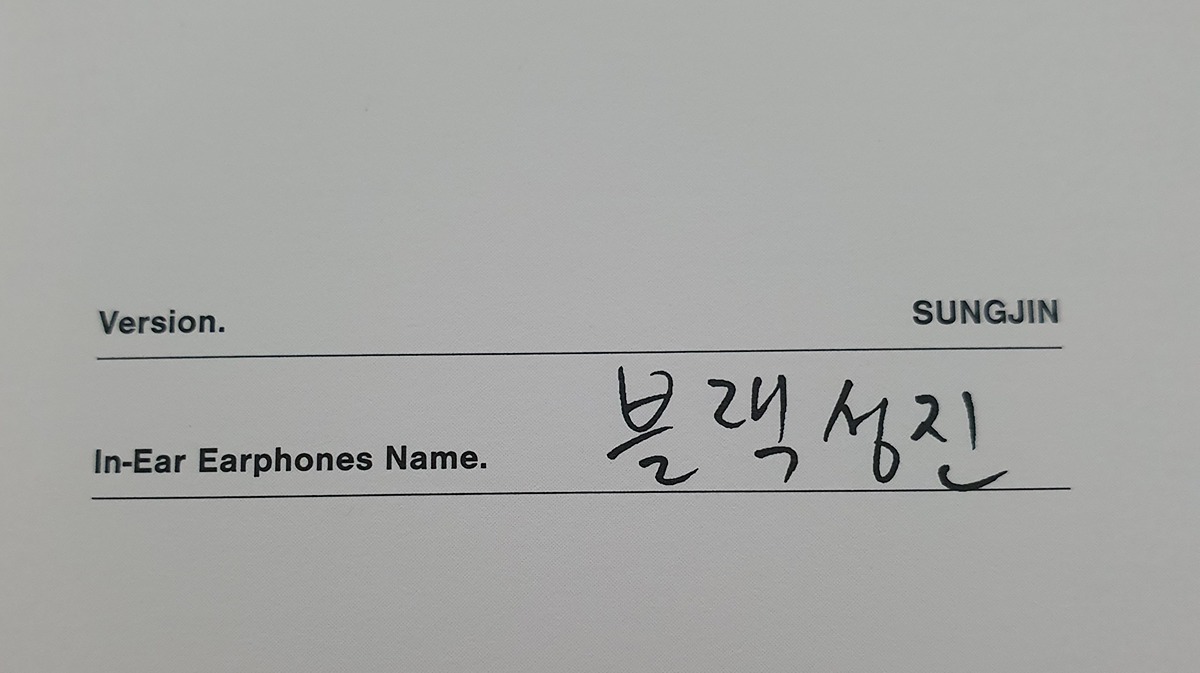 Version. SUNGJIN
In-Ear Earphones Name. 블랙성진